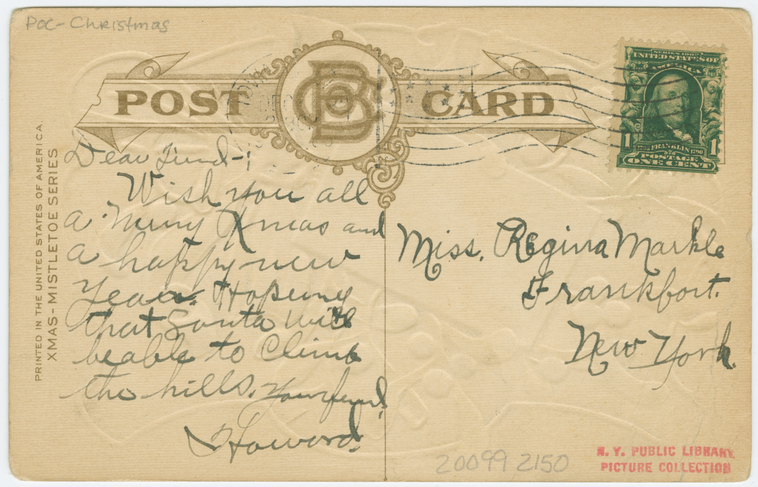 POC-Christmas
POST CARD
BC
SERIES 1902
UNITED STATES OF
AMERICA
1 FRANKLIN 1
POSTAGE
ONE CENT
PRINTED IN THE UNITED STATES OF AMERICA.
XMAS-MISTLETOE SERIES
Dear Friend-
Wish you all
a Merry Xmas and
a happy new
Year. Hopeing
that Santa will
be able to Climb
the hills. Your friend
Howard.
Miss. Regina Markle
Frankfort.
New York.
20099 2150
N. Y. PUBLIC LIBRARY
PICTURE COLLECTION